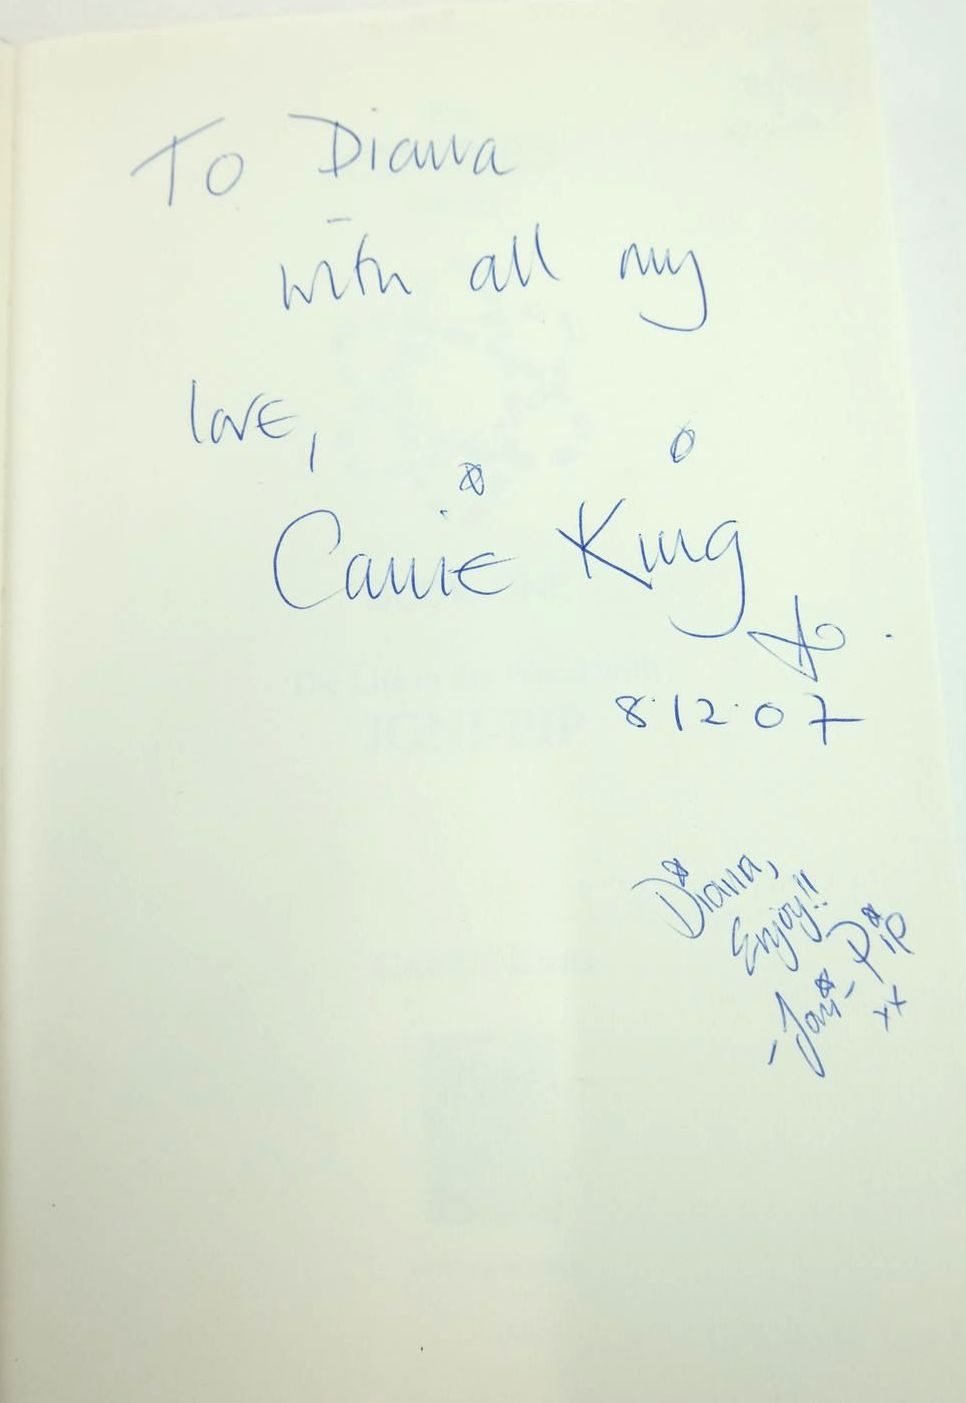 To Diana
with all my
love,
Carrie King
8.12.07
Diana,
Enjoy!!
Pip
xx